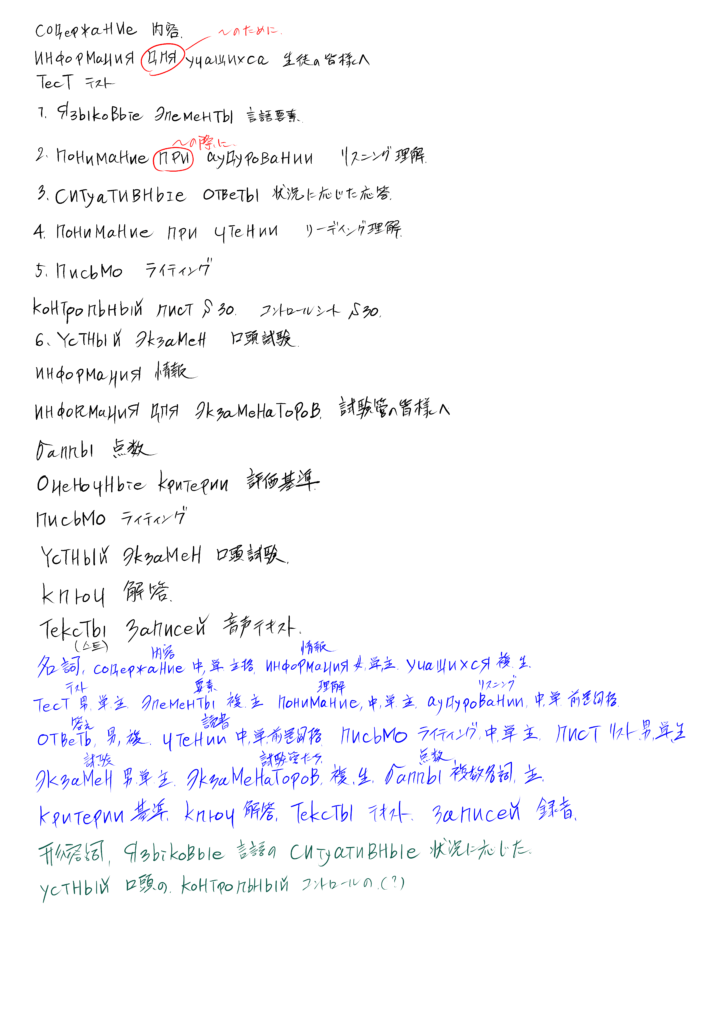 Содержание 内容.
～のために.
информация для учащихса 生徒の皆様へ
Тест テスト
1. Языковые элементы 言語要素.
～の際に.
2. понимание при аудуровании リスニング理解.
3. Ситуативные ответы 状況に応じた応答.
4. понимание при чтении リーディング理解.
5. письмо ライティング
контрольный лист S 30. コントロールシート S30.
6. Устный экзамен 口頭試験.
информация 情報
информация для экзаменаторов. 試験官の皆様へ
баллы 点数
оценочные критерии 評価基準.
письмо ライティング
устный экзамен 口頭試験.
ключ 解答.
тексты записей 音声テキスト.
内容 情報
名詞. содержание 中.単主格. информация 女.単.主. учащихся 複.生.
テスト 要素 理解 リスニング
тест 男.単.主. элементы 複.主 понимание, 中.単.主. аудуровании. 中.単 前置詞格.
答え 読書
ответь. 男.複. чтении 中.単.前置詞格 письмо ライティング.中.単主. лист リスト.男.単.主
試験 試験官たち 点数
экзамен 男.単.主. экзаменаторов. 複.生. баллы 複数名詞.主.
критерии 基準. ключ 解答. тексты テキスト. записей 録音.
形容詞. языковые 言語の ситуативные 状況に応じた.
устный 口頭の. контрольный コントロールの.(?)